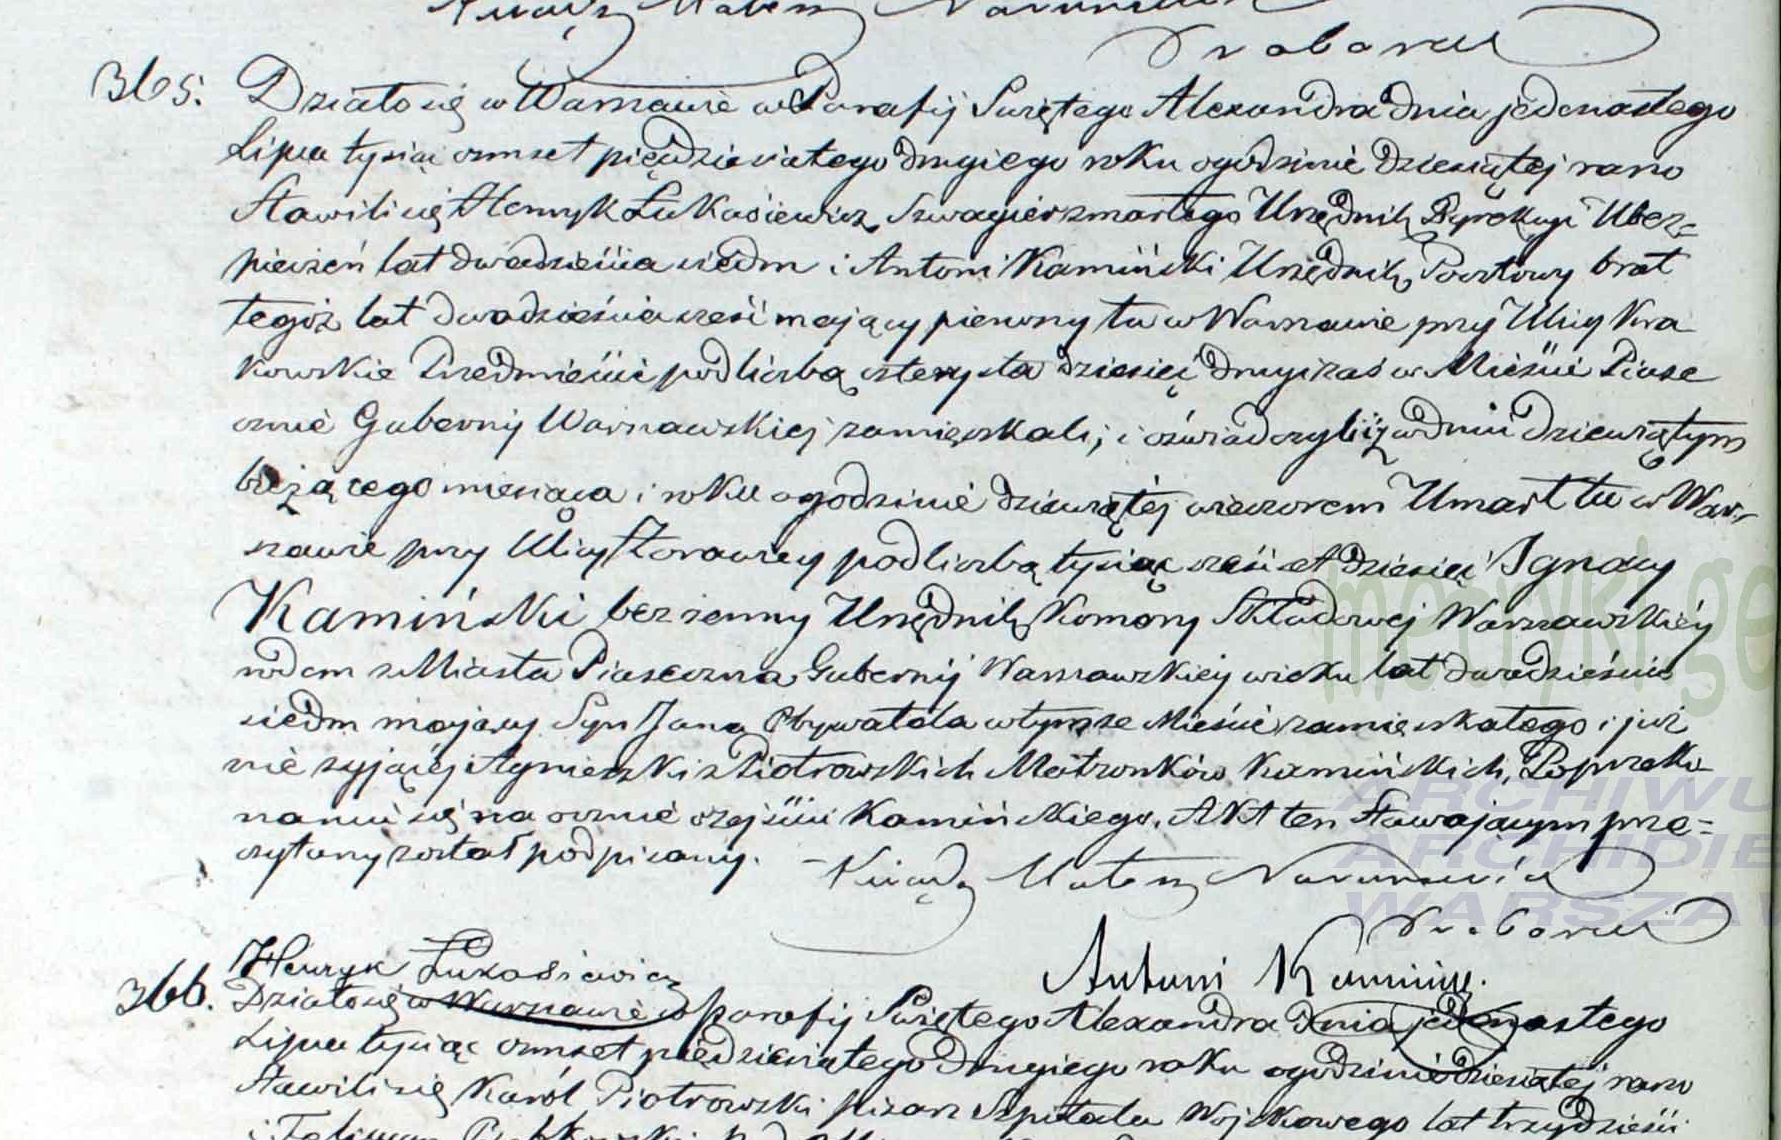 Ksiądz Mateusz
Proboszcz
365. Działo się w Warszawie w Parafij Świętego Alexandra dnia jedenastego
Lipca tysiąc ośmset pięćdziesiątego drugiego roku o godzinie dziesiątej rano
Stawili się Henryk Łukasiewicz, Szwagier zmarłego Urzędnik Dyrekcyi Ubez=
pieczeń lat dwadzieścia siedm i Antoni Kamiński Urzędnik Pocztowy brat
tegóż lat dwadzieścia sześć mający pierwszy tu w Warszawie przy Ulicy Kra
kowskie Przedmieście pod liczbą czterysta dziesięć drugi zaś w Mieście Piase
cznie Gubernij Warszawskiej zamieszkali, i oświadczyli iż w dniu dziewiątym
bieżącego miesiąca i roku o godzinie dziewiątéj wieczorem Umarł tu w War=
szawie przy Ulicy Żórawiey pod liczbą tysiąc sześćset dziesięć Ignacy
Kamiński bezżenny Urzędnik Komory Składowej Warszawskiéy
rodem z Miasta Piaseczna Gubernij Warszawskiey wieku lat dwadzieścia
siedm mający Syn Jana Obywatela w tymże Mieście zamieszkałego i już
nie żyjącéj Agnieszki z Piotrowskich Małżonków Kamińskich, Po przeko
naniu się na ocznie o zejściu Kamińskiego, Akt ten Stawającym prze=
czytany został podpisany. Ksiądz Mateusz
Proboszcz
Henryk Łukasiewicz
Antoni Kamiński.
366. Działo się w Warszawie w parafij Świętego Alexandra dnia jedenastego
Lipca tysiąc ośmset pięćdziesiątego drugiego roku o godzinie dziesiątej rano
Stawili się Karól Piotrowski pisarz Szpitala Wojskowego lat trzydzieści
metryki.ge
ARCHIWU
ARCHIDIE
WARSZAW